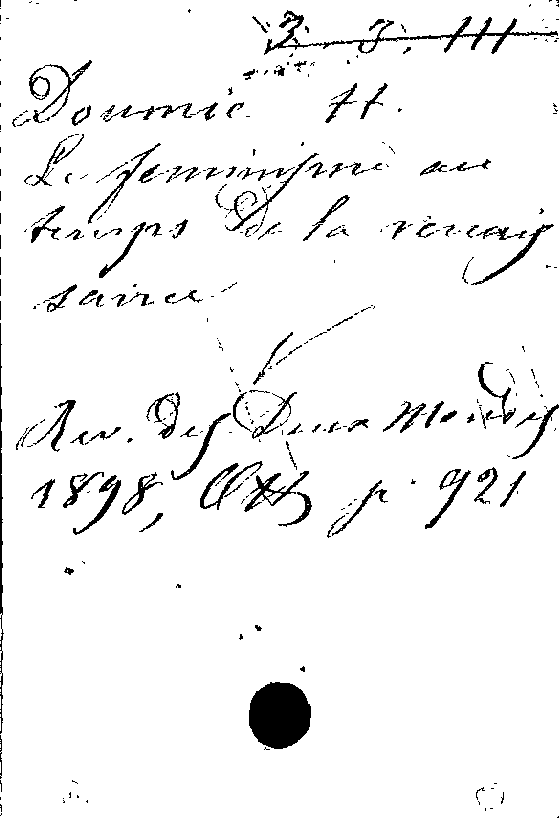 3. 3. III
Doumic H.
Le feminisme au
temps de la renais
sance
Rev. des Deux Mondes
1898, p. 921